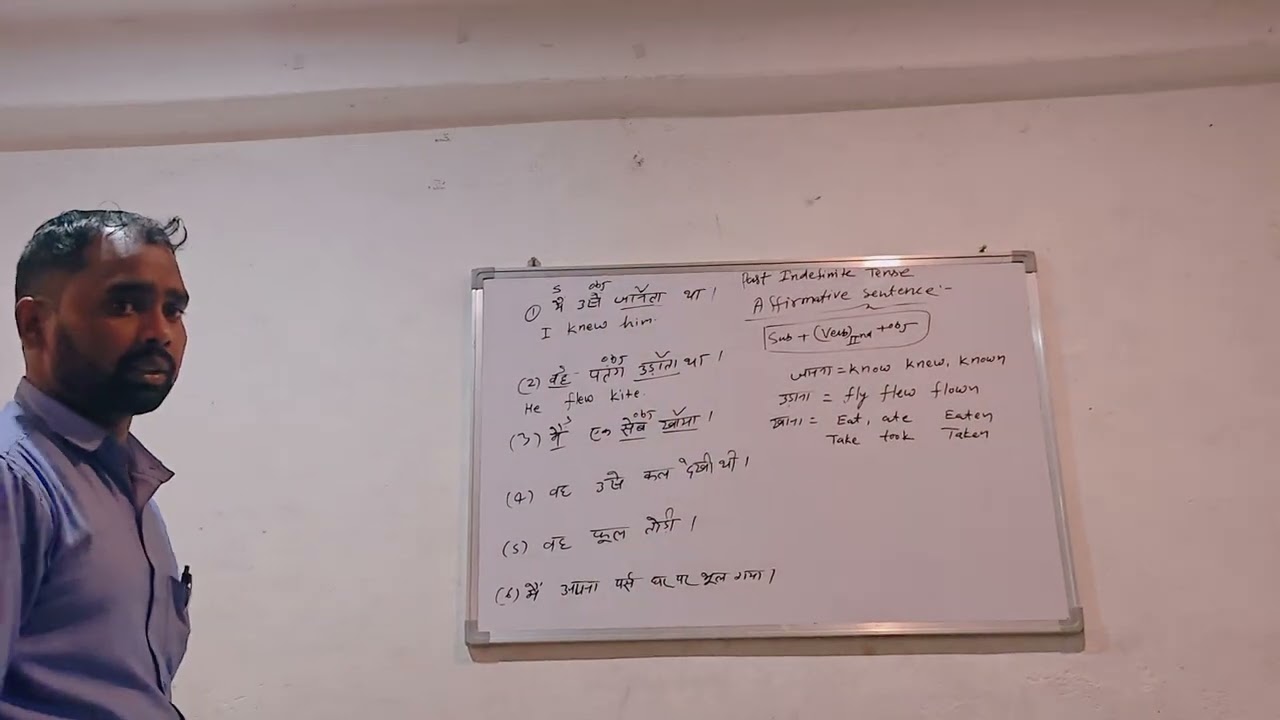 S obj
① मैं उसे जानता था ।
I knew him.
obj
(2) वह पतंग उड़ाता था ।
He flew kite.
S obj
(3) मैं एक सेब खाया ।
(4) वह उसे कल देखी थी ।
(5) वह फूल तोड़ी ।
(6) मैं अपना पर्स घर पर भूल गया ।
Past Indefinite Tense
Affirmative sentence:-
Sub + (Verb)IInd + obj
जानना = know knew, known
उड़ाना = fly flew flown
खाना = Eat, ate Eaten
Take took Taken